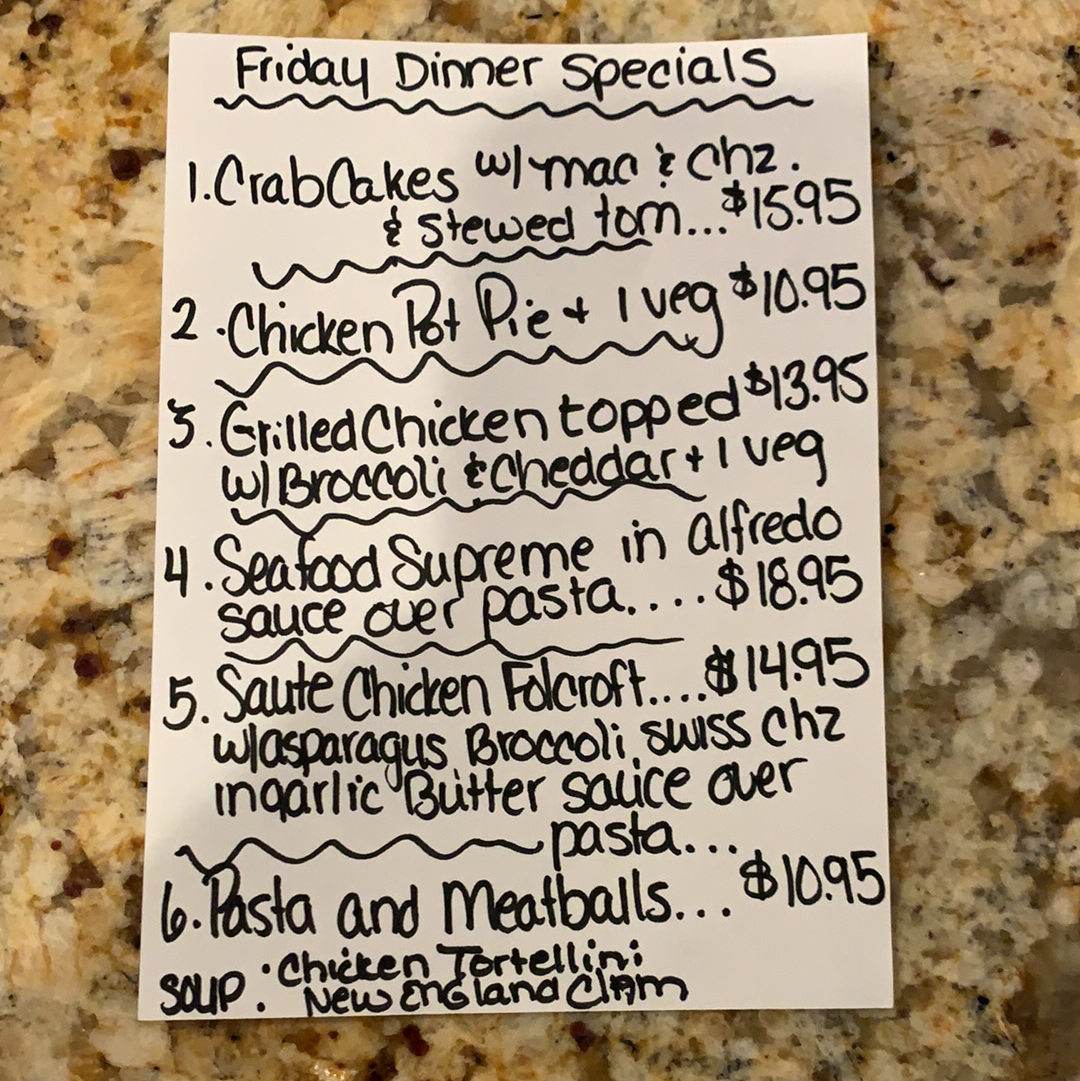 Friday Dinner Specials
1. Crab Cakes w/ mac & Chz.
& Stewed tom... $15.95
2. Chicken Pot Pie + 1 veg $10.95
3. Grilled Chicken topped $13.95
w/ Broccoli & Cheddar + 1 veg
4. Seafood Supreme in alfredo
sauce over pasta.... $18.95
5. Saute Chicken Folcroft.... $14.95
w/asparagus Broccoli swiss Chz
in garlic Butter sauce over
pasta...
6. Pasta and Meatballs... $10.95
SOUP: Chicken Tortellini
New England Clam